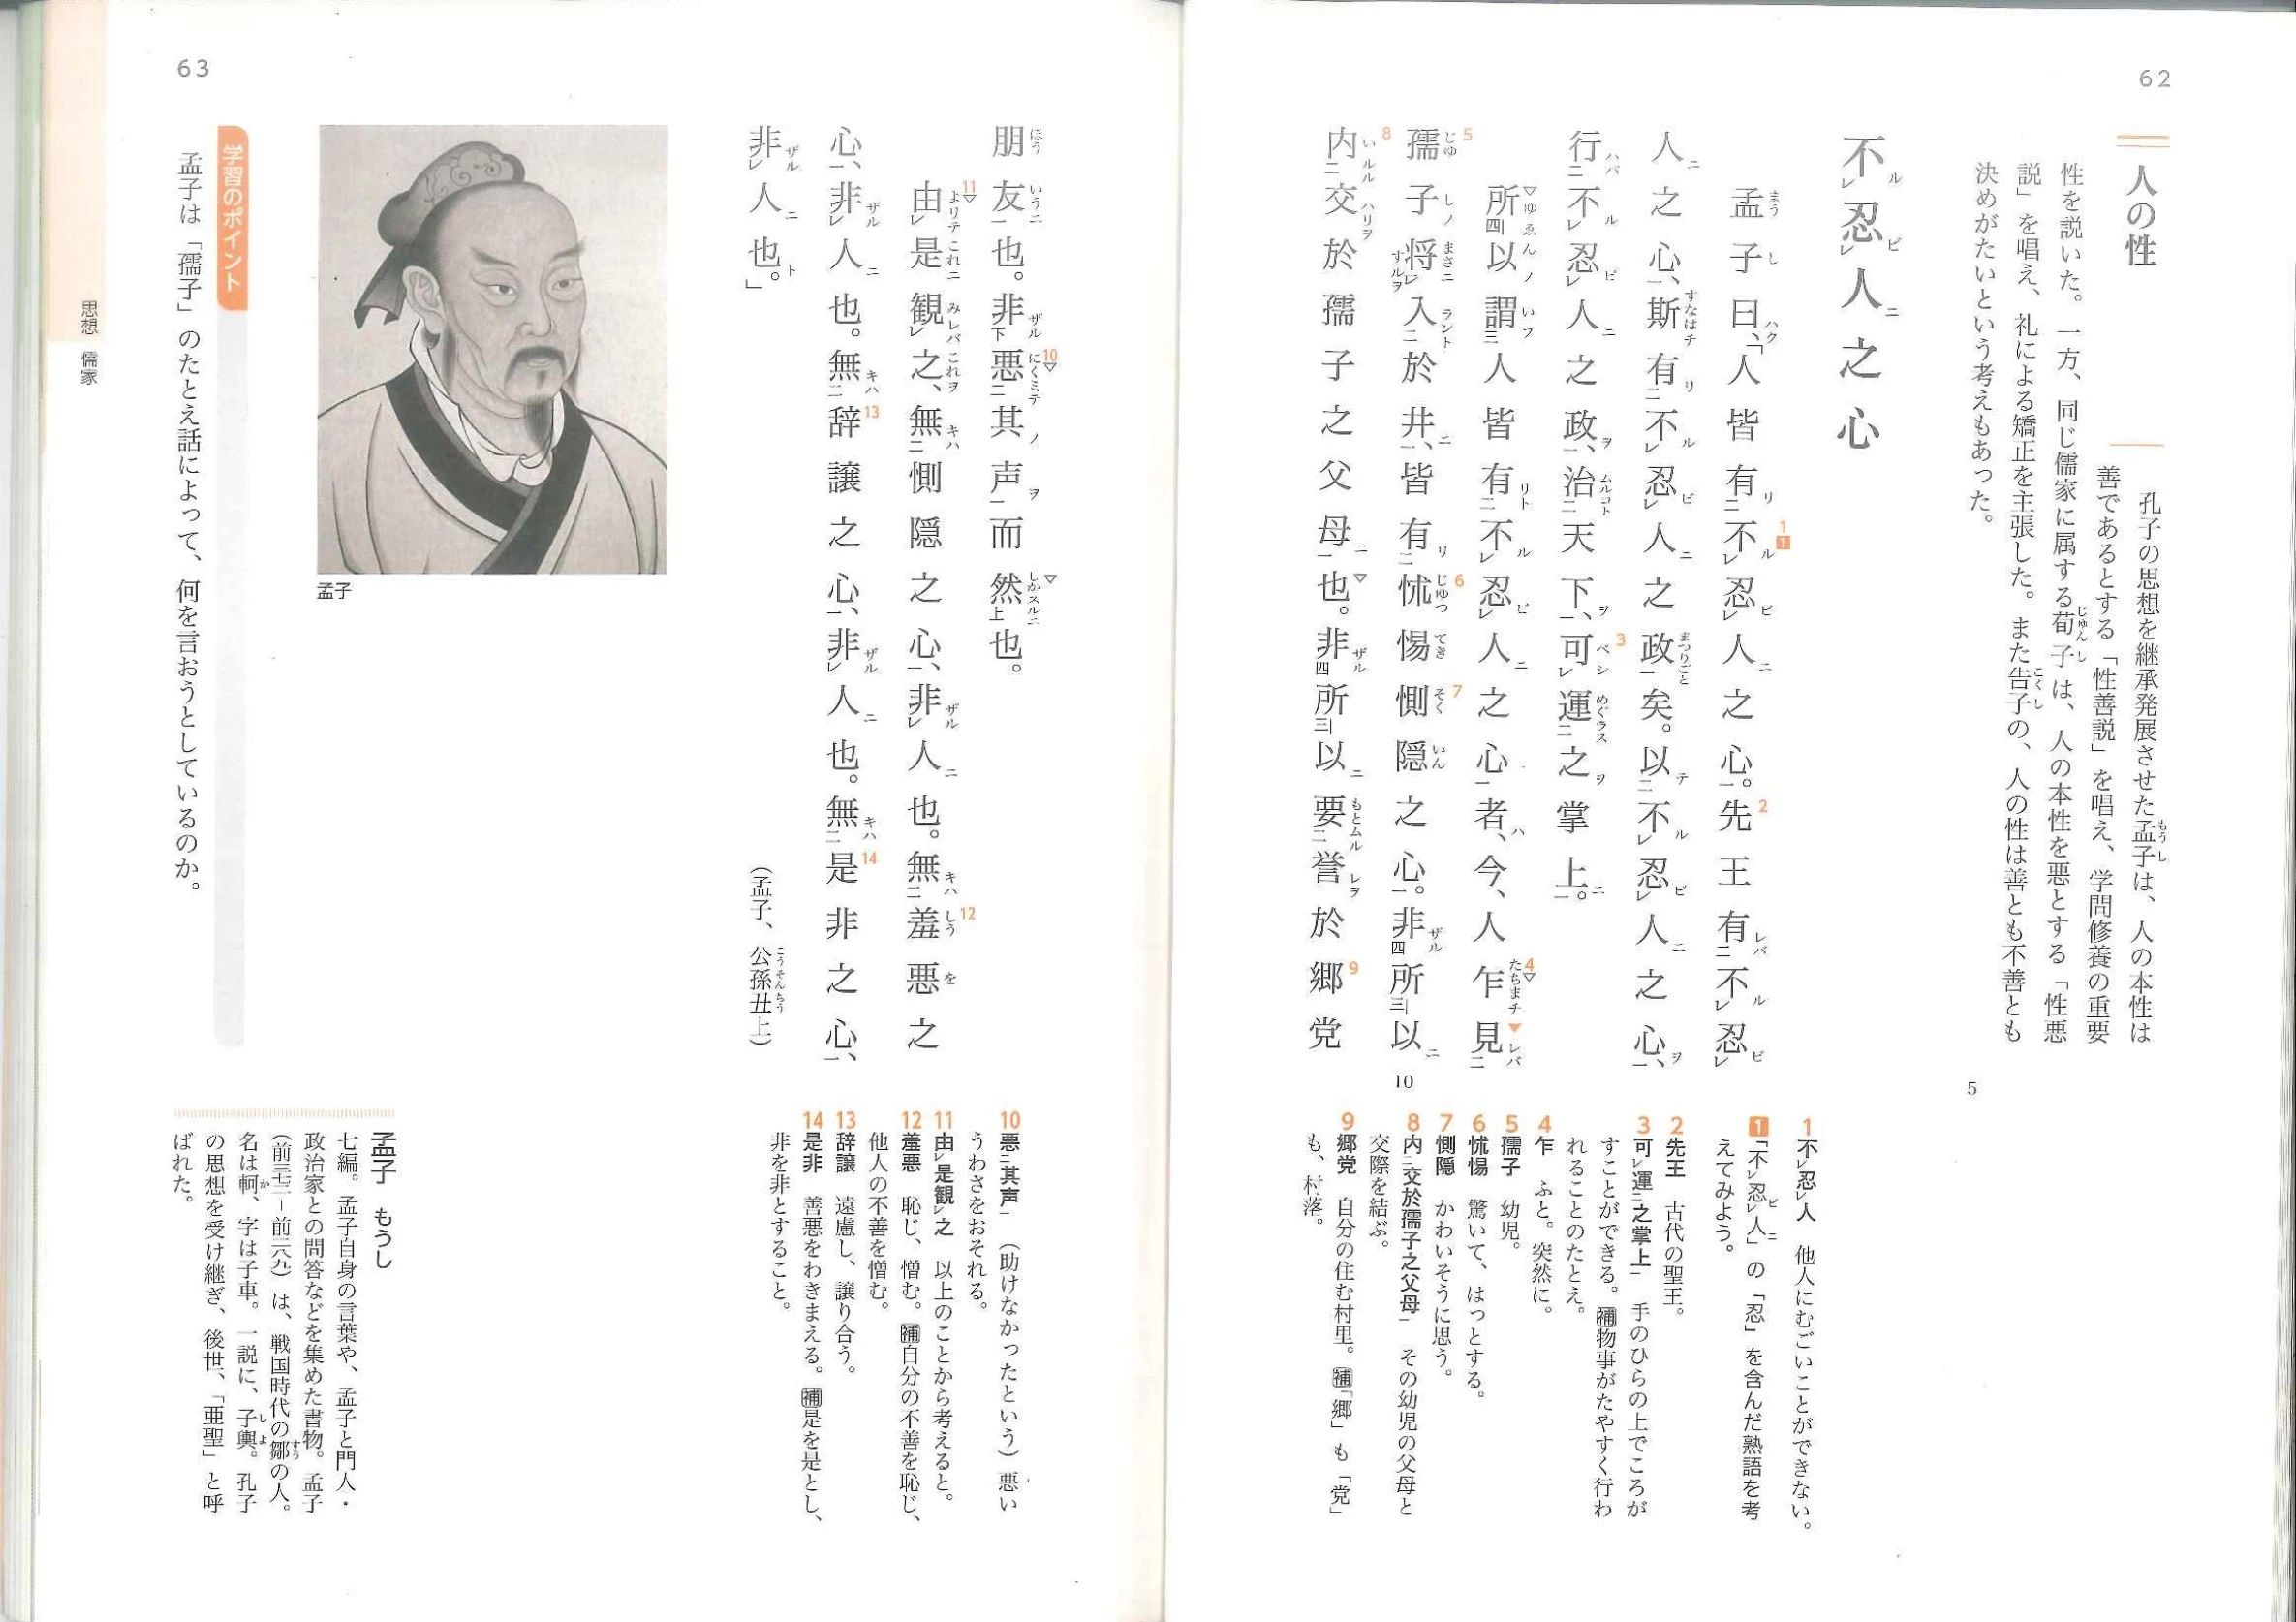 62
人の性
孔子の思想を継承発展させた孟子は、人の本性は
善であるとする「性善説」を唱え、学問修養の重要
性を説いた。一方、同じ儒家に属する荀子は、人の本性を悪とする「性悪
説」を唱え、礼による矯正を主張した。また告子の、人の性は善とも不善とも
決めがたいという考えもあった。
不忍人之心
孟子曰、「人皆有不忍人之心。先王有不忍
人之心、斯有不忍人之政矣。以不忍人之心、
行不忍人之政、治天下、可運之掌上。
所以謂人皆有不忍人之心者、今、人乍見
孺子将入於井、皆有怵惕惻隠之心。非所以
内交於孺子之父母也。非所以要誉於郷党
5
10
1 不忍人 他人にむごいことができない。
1 「不忍人」の「忍」を含んだ熟語を考
えてみよう。
2 先王 古代の聖王。
3 可運之掌上 手のひらの上でころが
すことができる。補物事がたやすく行わ
れることのたとえ。
4 乍 ふと。突然に。
5 孺子 幼児。
6 怵惕 驚いて、はっとする。
7 惻隠 かわいそうに思う。
8 内交於孺子之父母 その幼児の父母と
交際を結ぶ。
9 郷党 自分の住む村里。補「郷」も「党」
も、村落。
63
朋友也。非悪其声而然也。
由是観之、無惻隠之心、非人也。無羞悪之
心、非人也。無辞譲之心、非人也。無是非之心、
非人也。」
(孟子、公孫丑上)
孟子
学習のポイント
孟子は「孺子」のたとえ話によって、何を言おうとしているのか。
10 悪其声 (助けなかったという)悪い
うわさをおそれる。
11 由是観之 以上のことから考えると。
12 羞悪 恥じ、憎む。補自分の不善を恥じ、
他人の不善を憎む。
13 辞譲 遠慮し、譲り合う。
14 是非 善悪をわきまえる。補是を是とし、
非を非とすること。
孟子 もうし
七編。孟子自身の言葉や、孟子と門人・
政治家との問答などを集めた書物。孟子
(前三七二―前二八九)は、戦国時代の鄒の人。
名は軻、字は子車。一説に、子輿。孔子
の思想を受け継ぎ、後世、「亜聖」と呼
ばれた。
思想 儒家